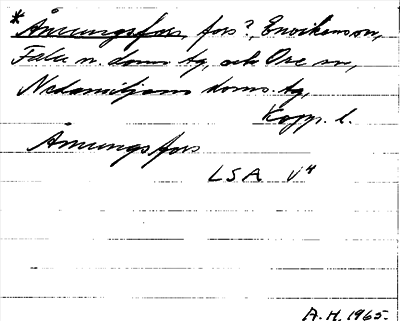 * Åmungsfors, fors?, Envikens sn,
Falu n. doms. tg, och Ore sn,
Nedansiljans doms. tg,
Kopp. l.
Åmungsfors
LSA V4
A.H. 1965.